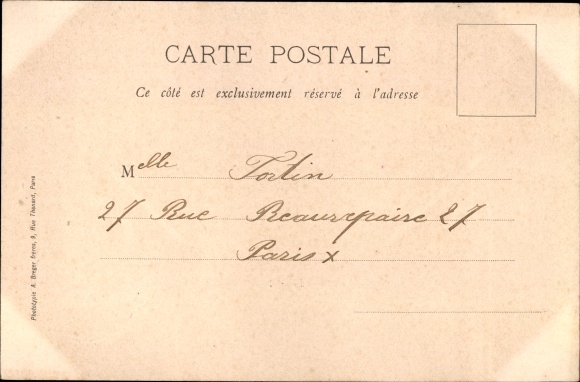 CARTE POSTALE
Ce côté est exclusivement réservé à l'adresse
Melle Tortin
27 Rue Beaurepaire 27
Paris x
Phototypie A. Breger frères, 9, Rue Thénard, Paris